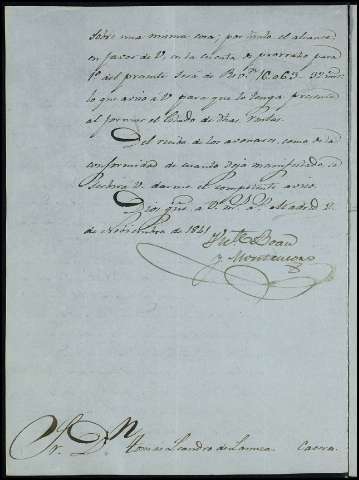 sobre una misma cosa; por tanto el alcance
en favor de V. en la cuenta de prorrateo para
1º del presente será de Rs. vn. 16.063..
lo que aviso a V. para que lo tenga presente
al formar el Estado de dhas. Rentas.
Del recibo de los como de la
conformidad de cuanto dejo manifestado, se
servirá V. darme el competente aviso.
Dios gue. a V. m. a. Madrid 2.
de Noviembre de 1841
Beau
y
Sr. Dn. Tomas Leandro de